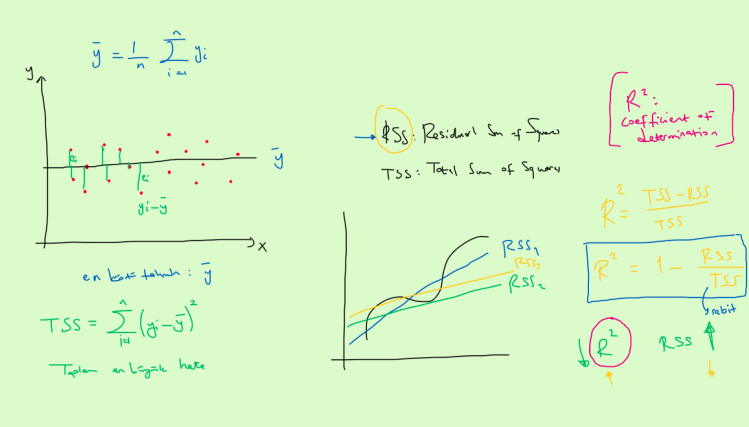 ȳ = 1/n Σ_{i=1}^{n} yi
y
ei
ei
ȳ
yi-ȳ
x
en kötü tahmin : ȳ
TSS = Σ_{i=1}^{n} (yi-ȳ)²
Toplam en büyük hata
RSS: Residual Sum of Squares
TSS: Total Sum of Squares
RSS1
RSS3
RSS2
R²:
coefficient of
determination
R² = TSS-RSS / TSS
R² = 1 - RSS / TSS
sabit
↓ R² RSS ↑
↑ ↓